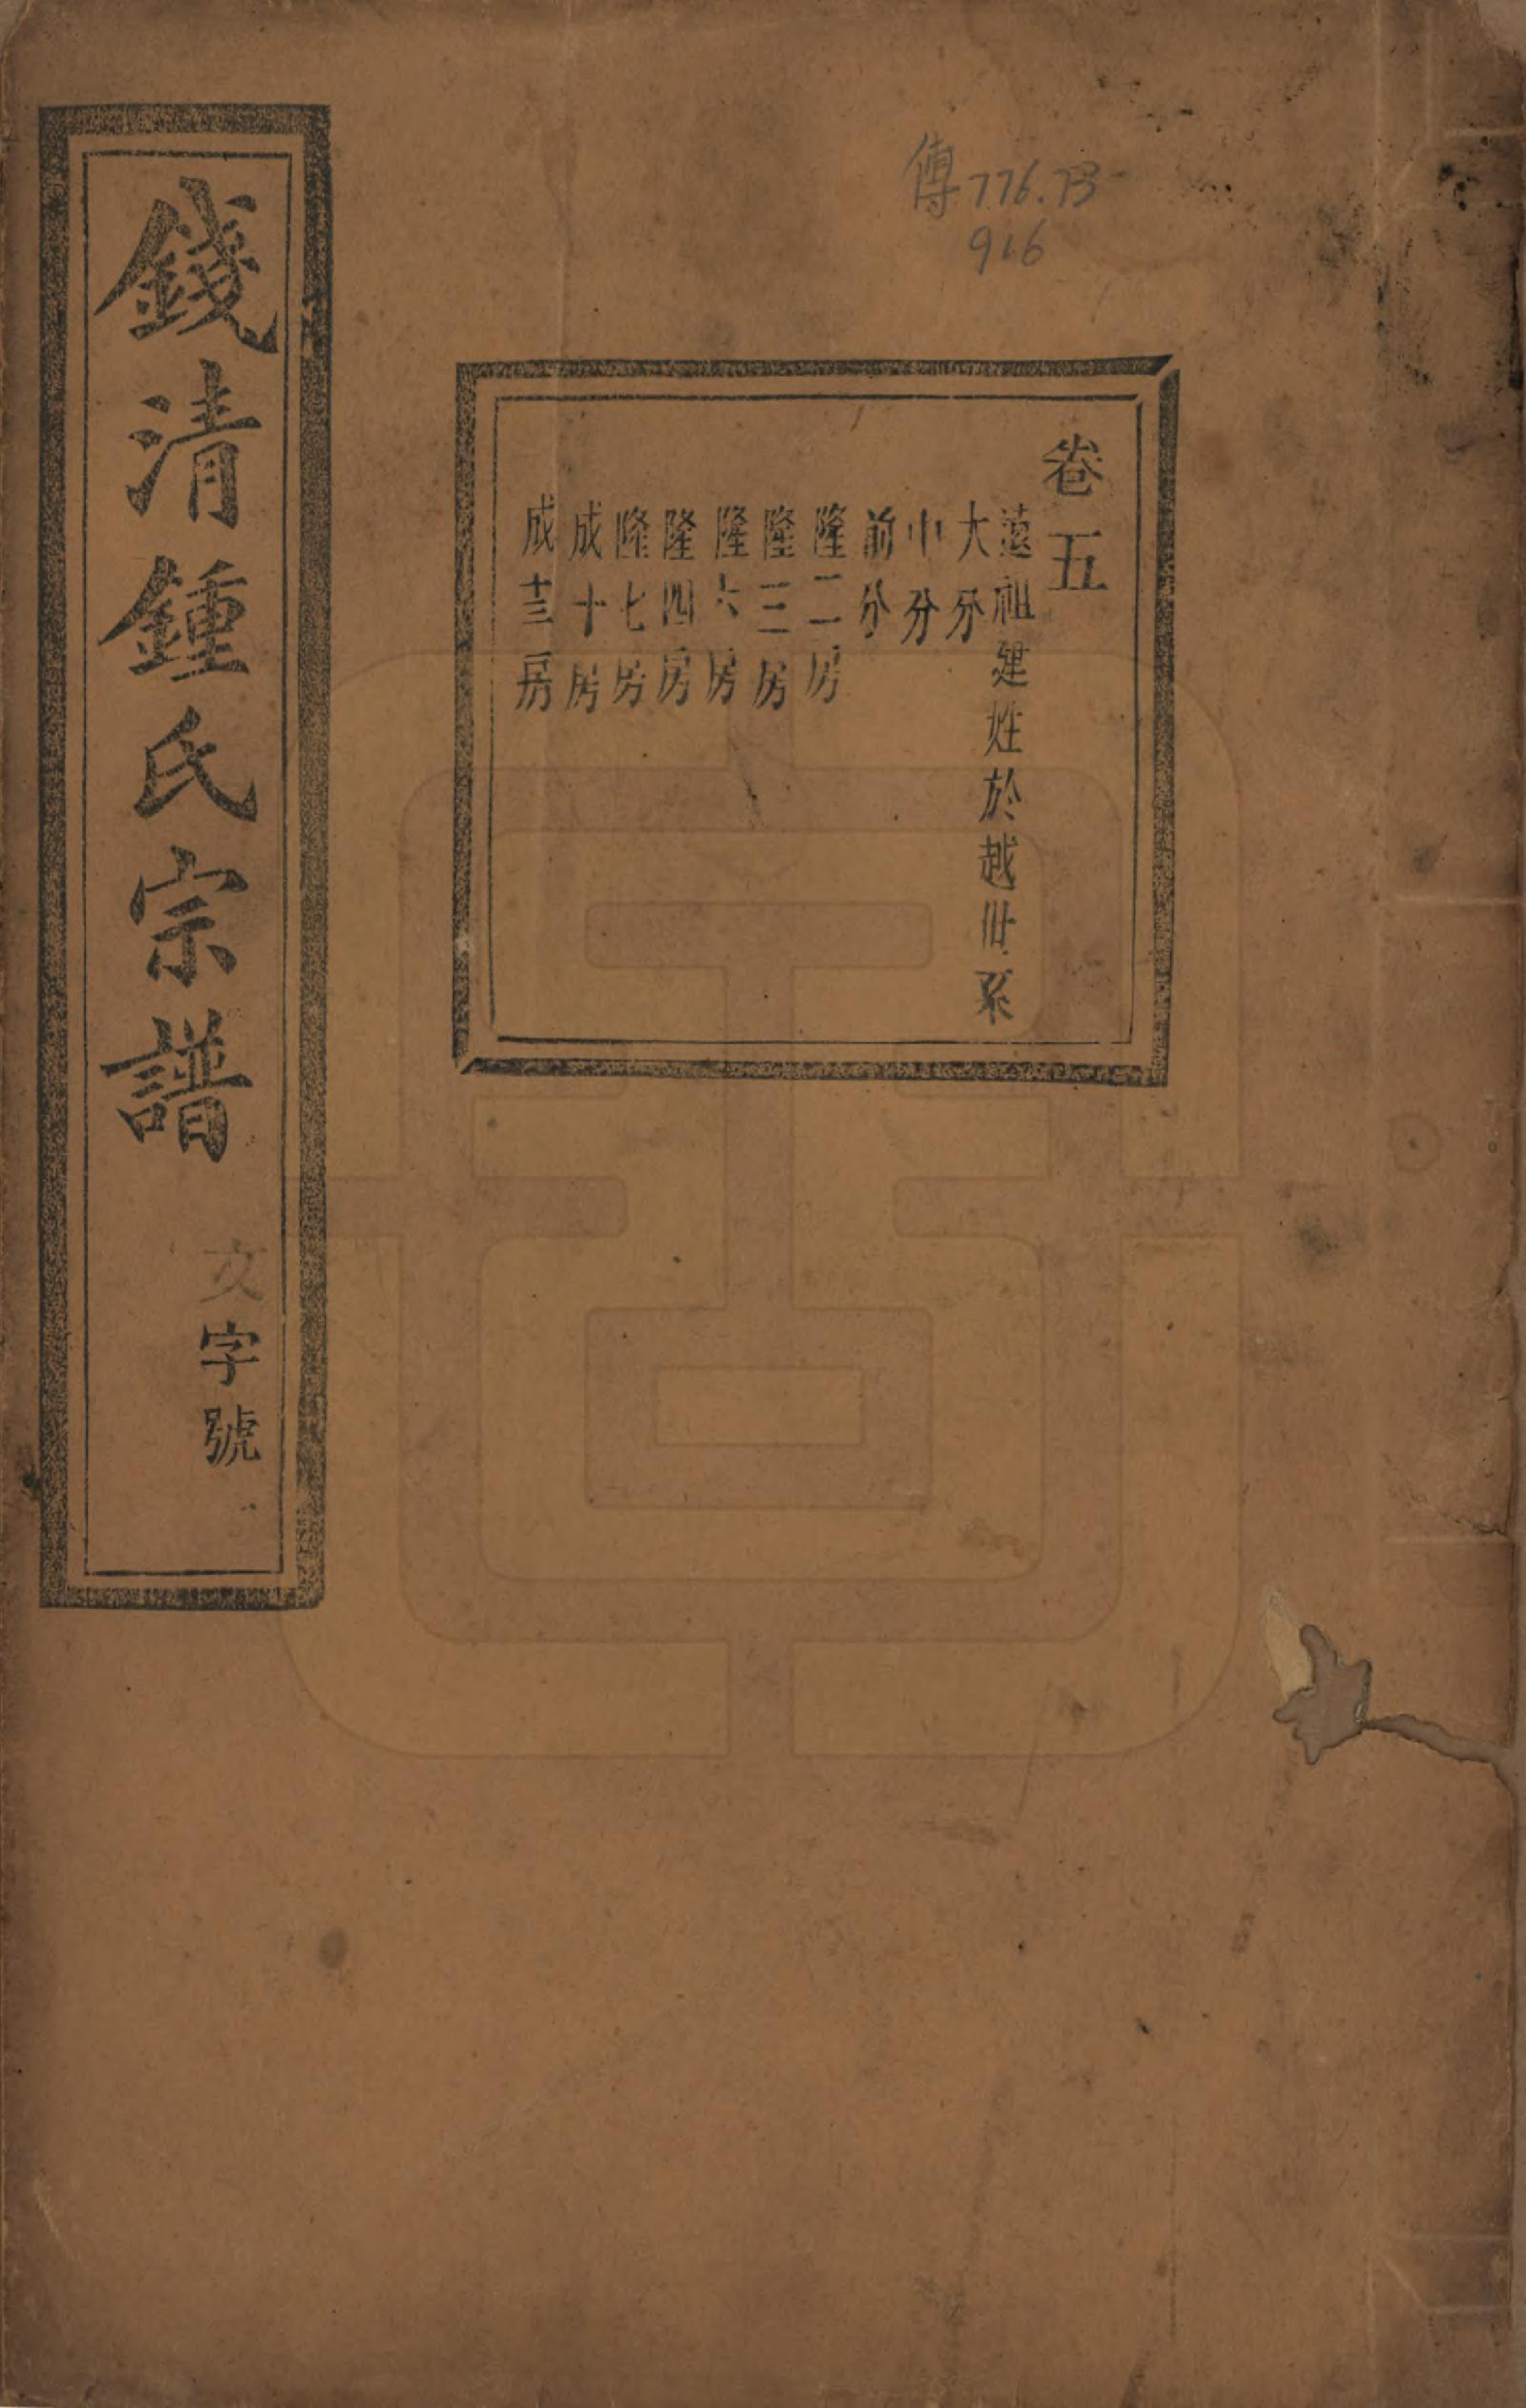 傳776.73
916
卷五
遠祖建姓於越世系
大分
中分
前分
隆二房
隆三房
隆六房
隆四房
隆七房
成十房
成十三房
錢清鍾氏宗譜
文字號